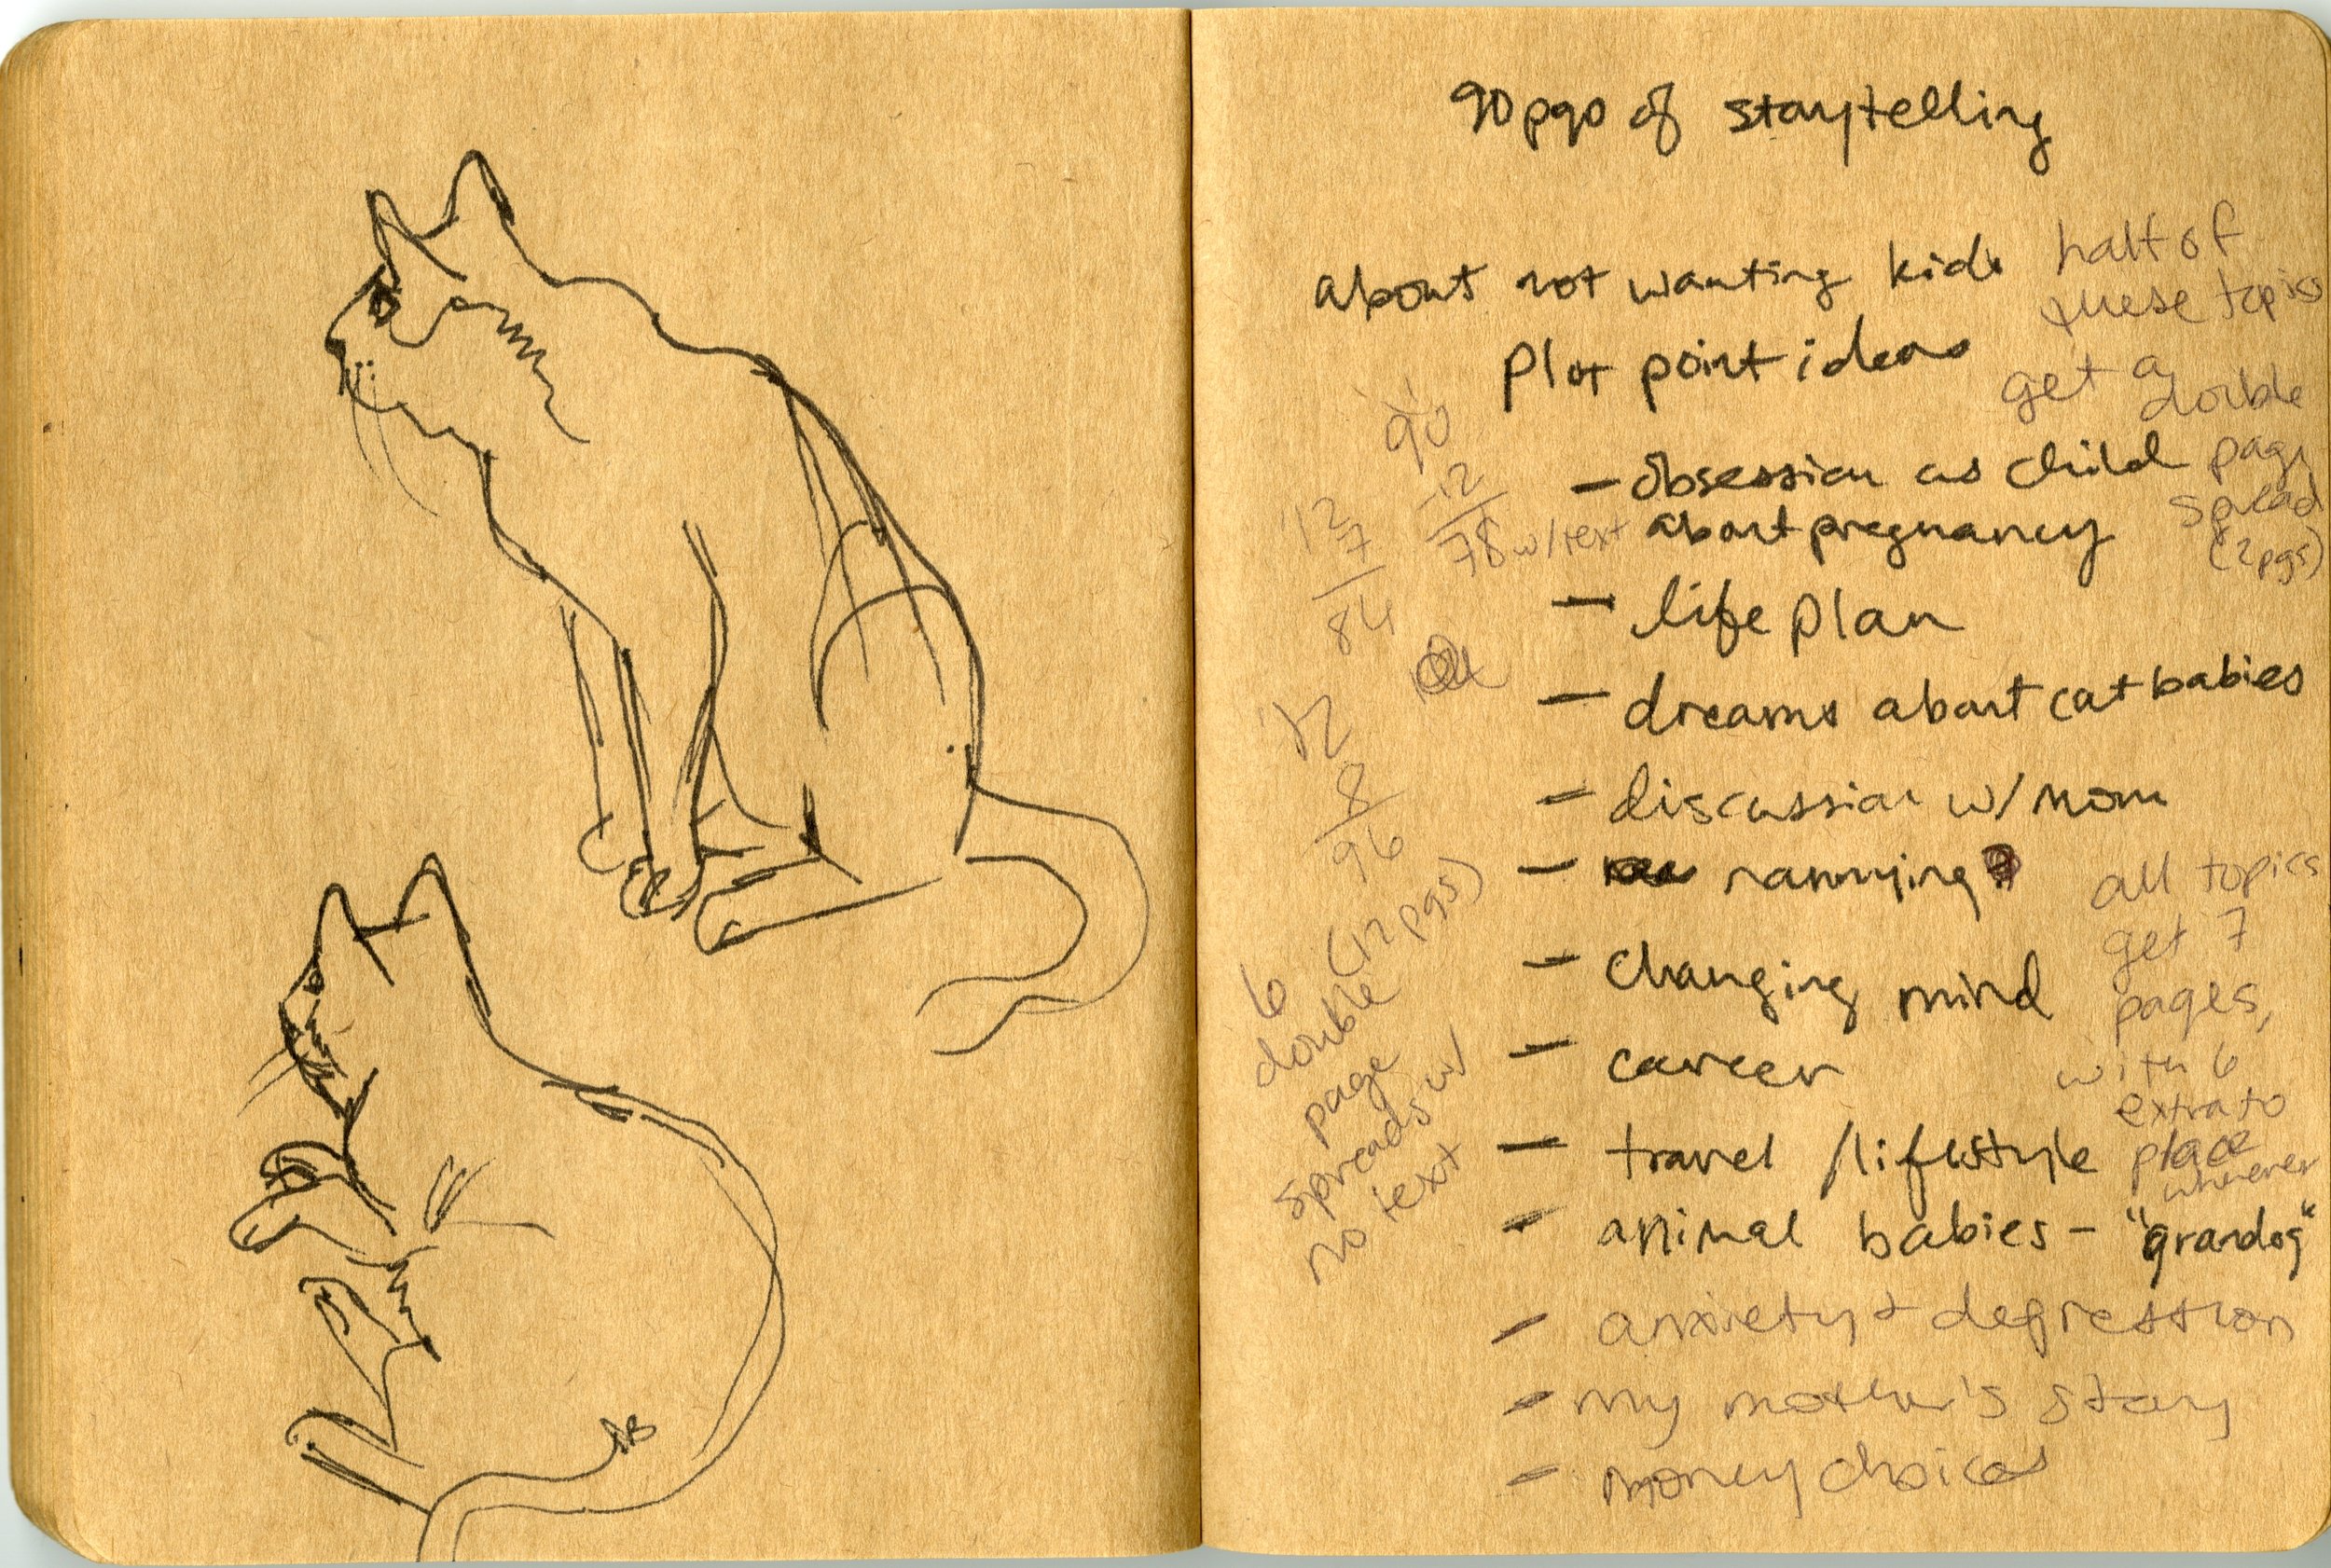 90 pgs of storytelling
about not wanting kids
plot point ideas
- obsession as child
about pregnancy
- life plan
- dreams about cat babies
- discussion w/ mom
- nannying
- changing mind
- career
- travel / lifestyle
- animal babies - "grandog"
- anxiety + depression
- my mother's story
- money choices
half of
these topics
get a
double
page
spread
(2pgs)
all topics
get 7
pages,
with 6
extra to
place
wherever
90
-12
78 w/text
12
7
84
12
8
96
6
double (12 pgs)
page
spreads w/
no text
AB